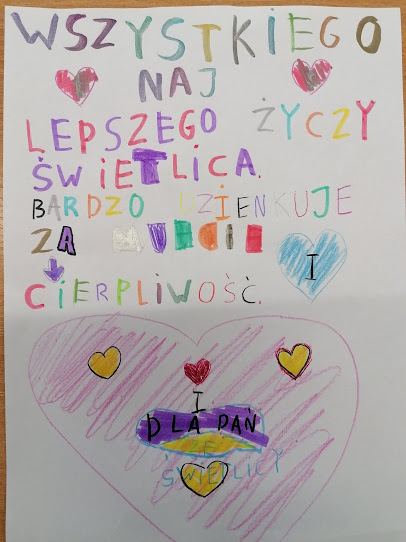 WSZYSTKIEGO
NAJ
LEPSZEGO ŻYCZY
ŚWIETLICA.
BARDZO DZIENKUJE
ZA
I
CIERPLIWOŚĆ.
I
DLA PAŃ
ZE
ŚWIETLICY